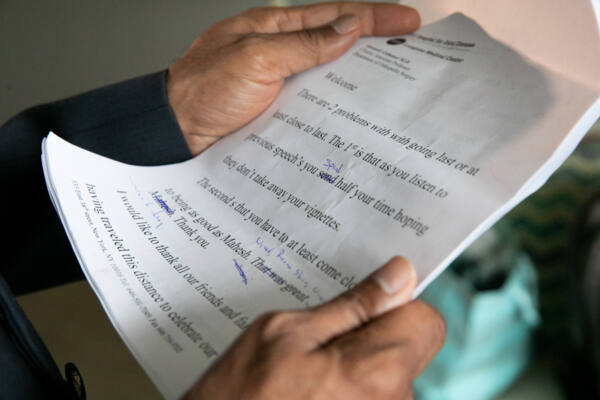 Hospital for Joint Diseases
Medical Center
Department of Orthopaedic Surgery
Welcome
There are 2 problems with with going last or at
least close to last. The 1st is that as you listen to
previous speech's you half your time hoping
they don't take away your vignettes.
The second s that you have to at least come clo
to being as good as Mahesh. That was great
Mahesh. Thank you.
I would like to thank all our friends and fam
having traveled this distance to celebrate our
New York, NY